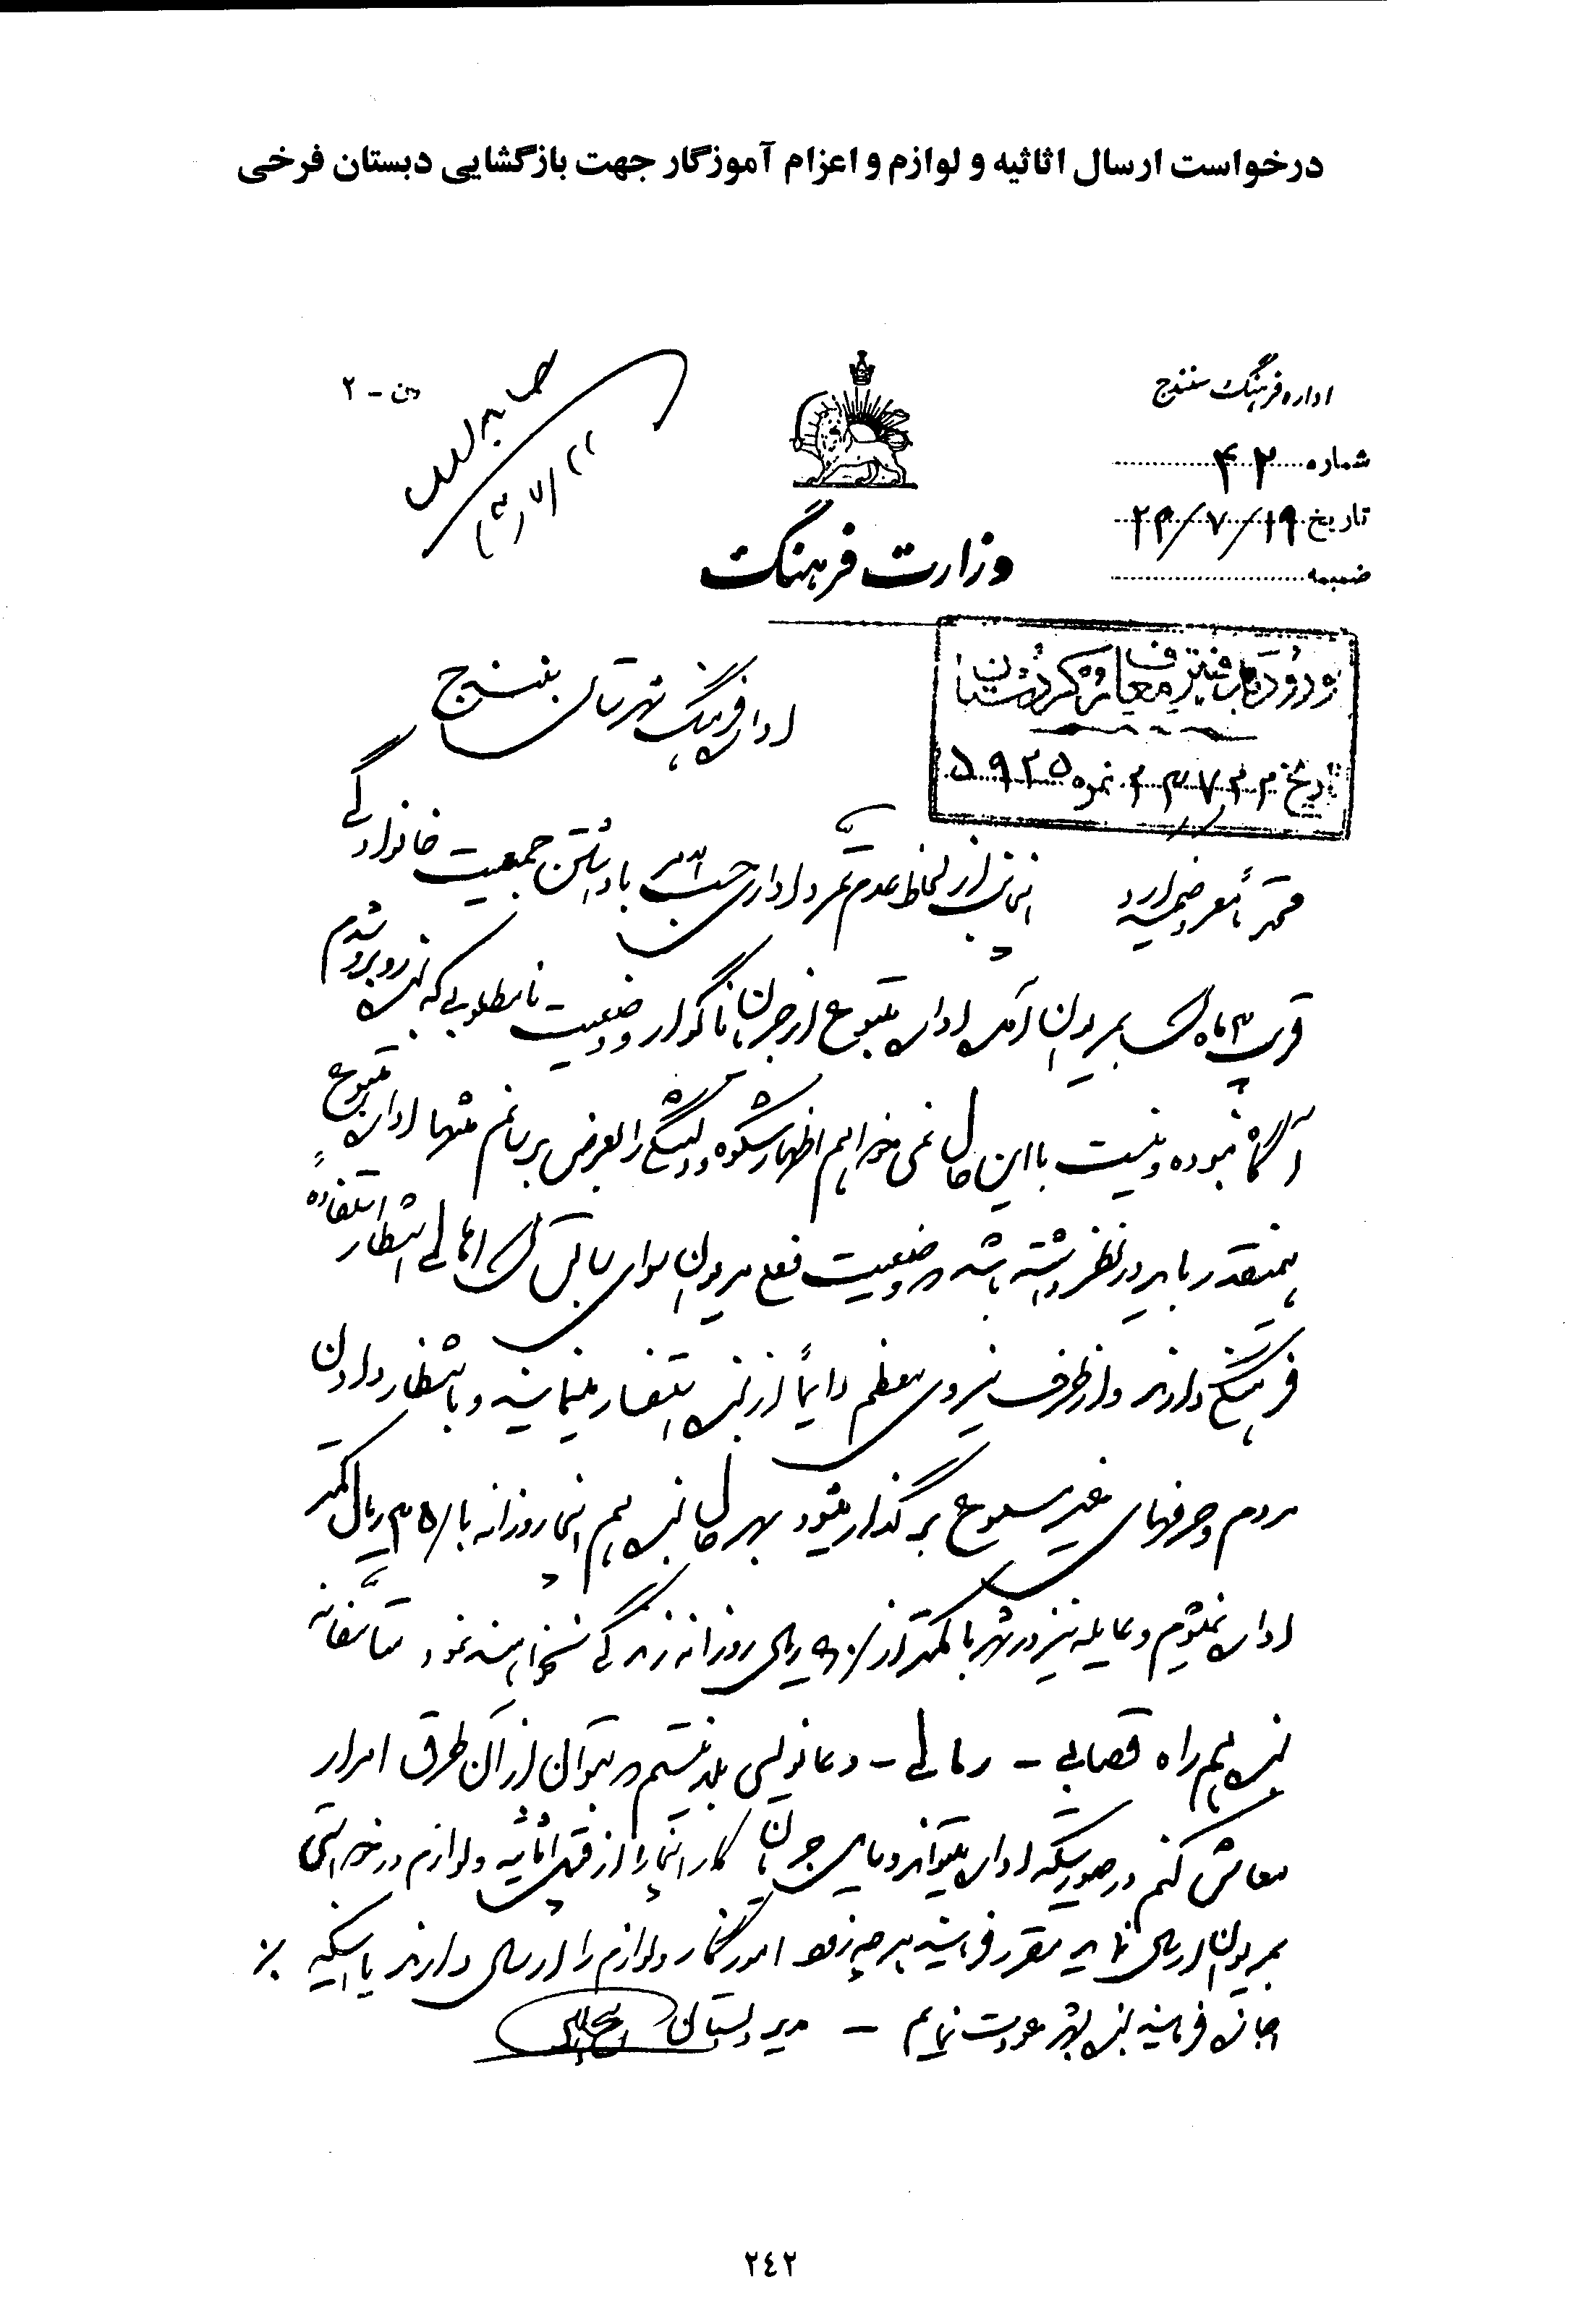 درخواست ارسال اثاثیه و لوازم و اعزام آموزگار جهت بازگشایی دبستان فرخی
اداره فرهنگ سنندج
شماره ۴۲
تاریخ ۲۳/۷/۱۹
ضمیمه
دن - ۲
وزارت فرهنگ
ورود دفتر معارف کردستان
تاریخ نمره ۵۹۳۵
اداره فرهنگ شهرستان سنندج
محترماً معروض میدارد اینجانب از لحاظ عدم تمرد اداری با داشتن جمعیت خانوادگی
قریب ۳ ماه است بمریوان آمده اداره متبوع از جریان ناگوار و وضعیت نامطلوبی که بنده روبرو شدم
آگاه نبوده و نیست با این حال نمی خواهم اظهار شکوه و دلتنگی را بعرض برسانم منتها اداره متبوع
همینقدر باید در نظر داشته باشد در وضعیت فعلی مریوان اهالی انتظار استفاده
فرهنگی دارند و از طرف نیروی معظم دایماً از بنده استفسار مینمایند و با انتظار دادن
مردم و حرفهای غیر مسموع برگذار میشود بهر حال بنده هم اینجا روزانه با /۳۵ ریال کمتر
اداره نمیشوم و عایله نیز در شهر با کمتر از /۵۰ ریال روزانه زندگی نخواهند نمود متأسفانه
بنده هم راه قصابی - رمالی - دعانویسی بلد نیستم که بتوان از آن طرق امرار
معاش کنم در صورتیکه اداره میتواند وسایل جریان کار اینجا را از قبیل اثاثیه و لوازم درخواستی
بمریوان ارسال نماید مقرر فرمایند هر چه زودتر آموزگار و لوازم را ارسال دارند یا اینکه ٪
اجازه فرمایند بنده بشهر عودت نمایم - مدیر دبستان
۲۴۲